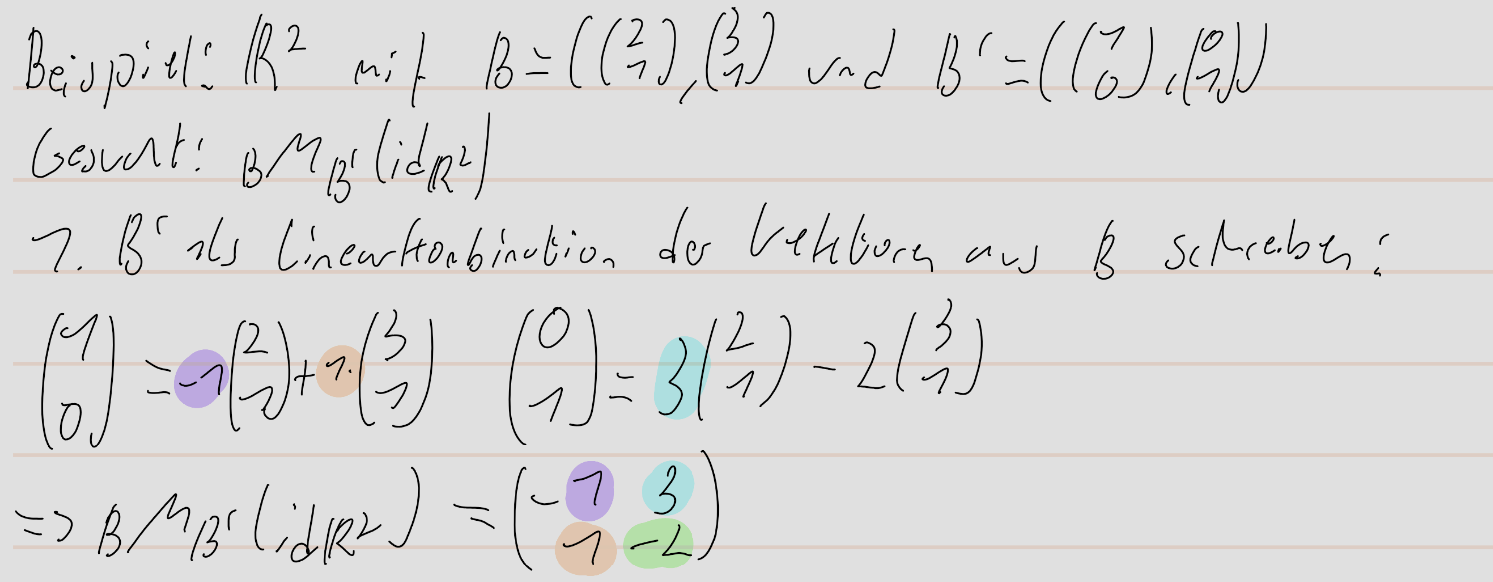 Beispiel: ℝ² mit B = ((2 1), (3 1)) und B' = ((1 0), (0 1))
Gesucht: BMB'(idℝ²)
1. B' als Linearkombination der Vektoren aus B schreiben:
(1 0) = -1 (2 1) + 1· (3 1) (0 1) = 3 (2 1) - 2 (3 1)
=> BMB'(idℝ²) = (-1 3 1 -2)